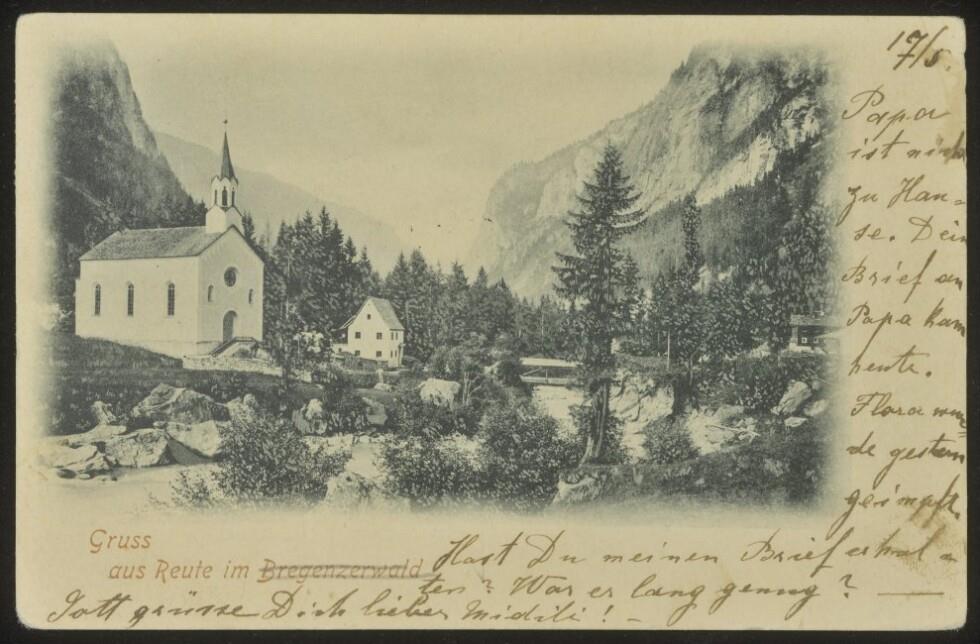 17/5.
Papa
ist nicht
zu Hau-
se. Dein
Brief an
Papa kam
heute.
Flora wur-
de gestern
geimpft.
Gruss
aus Reute im Bregenzerwald
Hast Du meinen Brief erhal
ten? War er lang genug?
Gott grüsse Dich lieber Midili! -